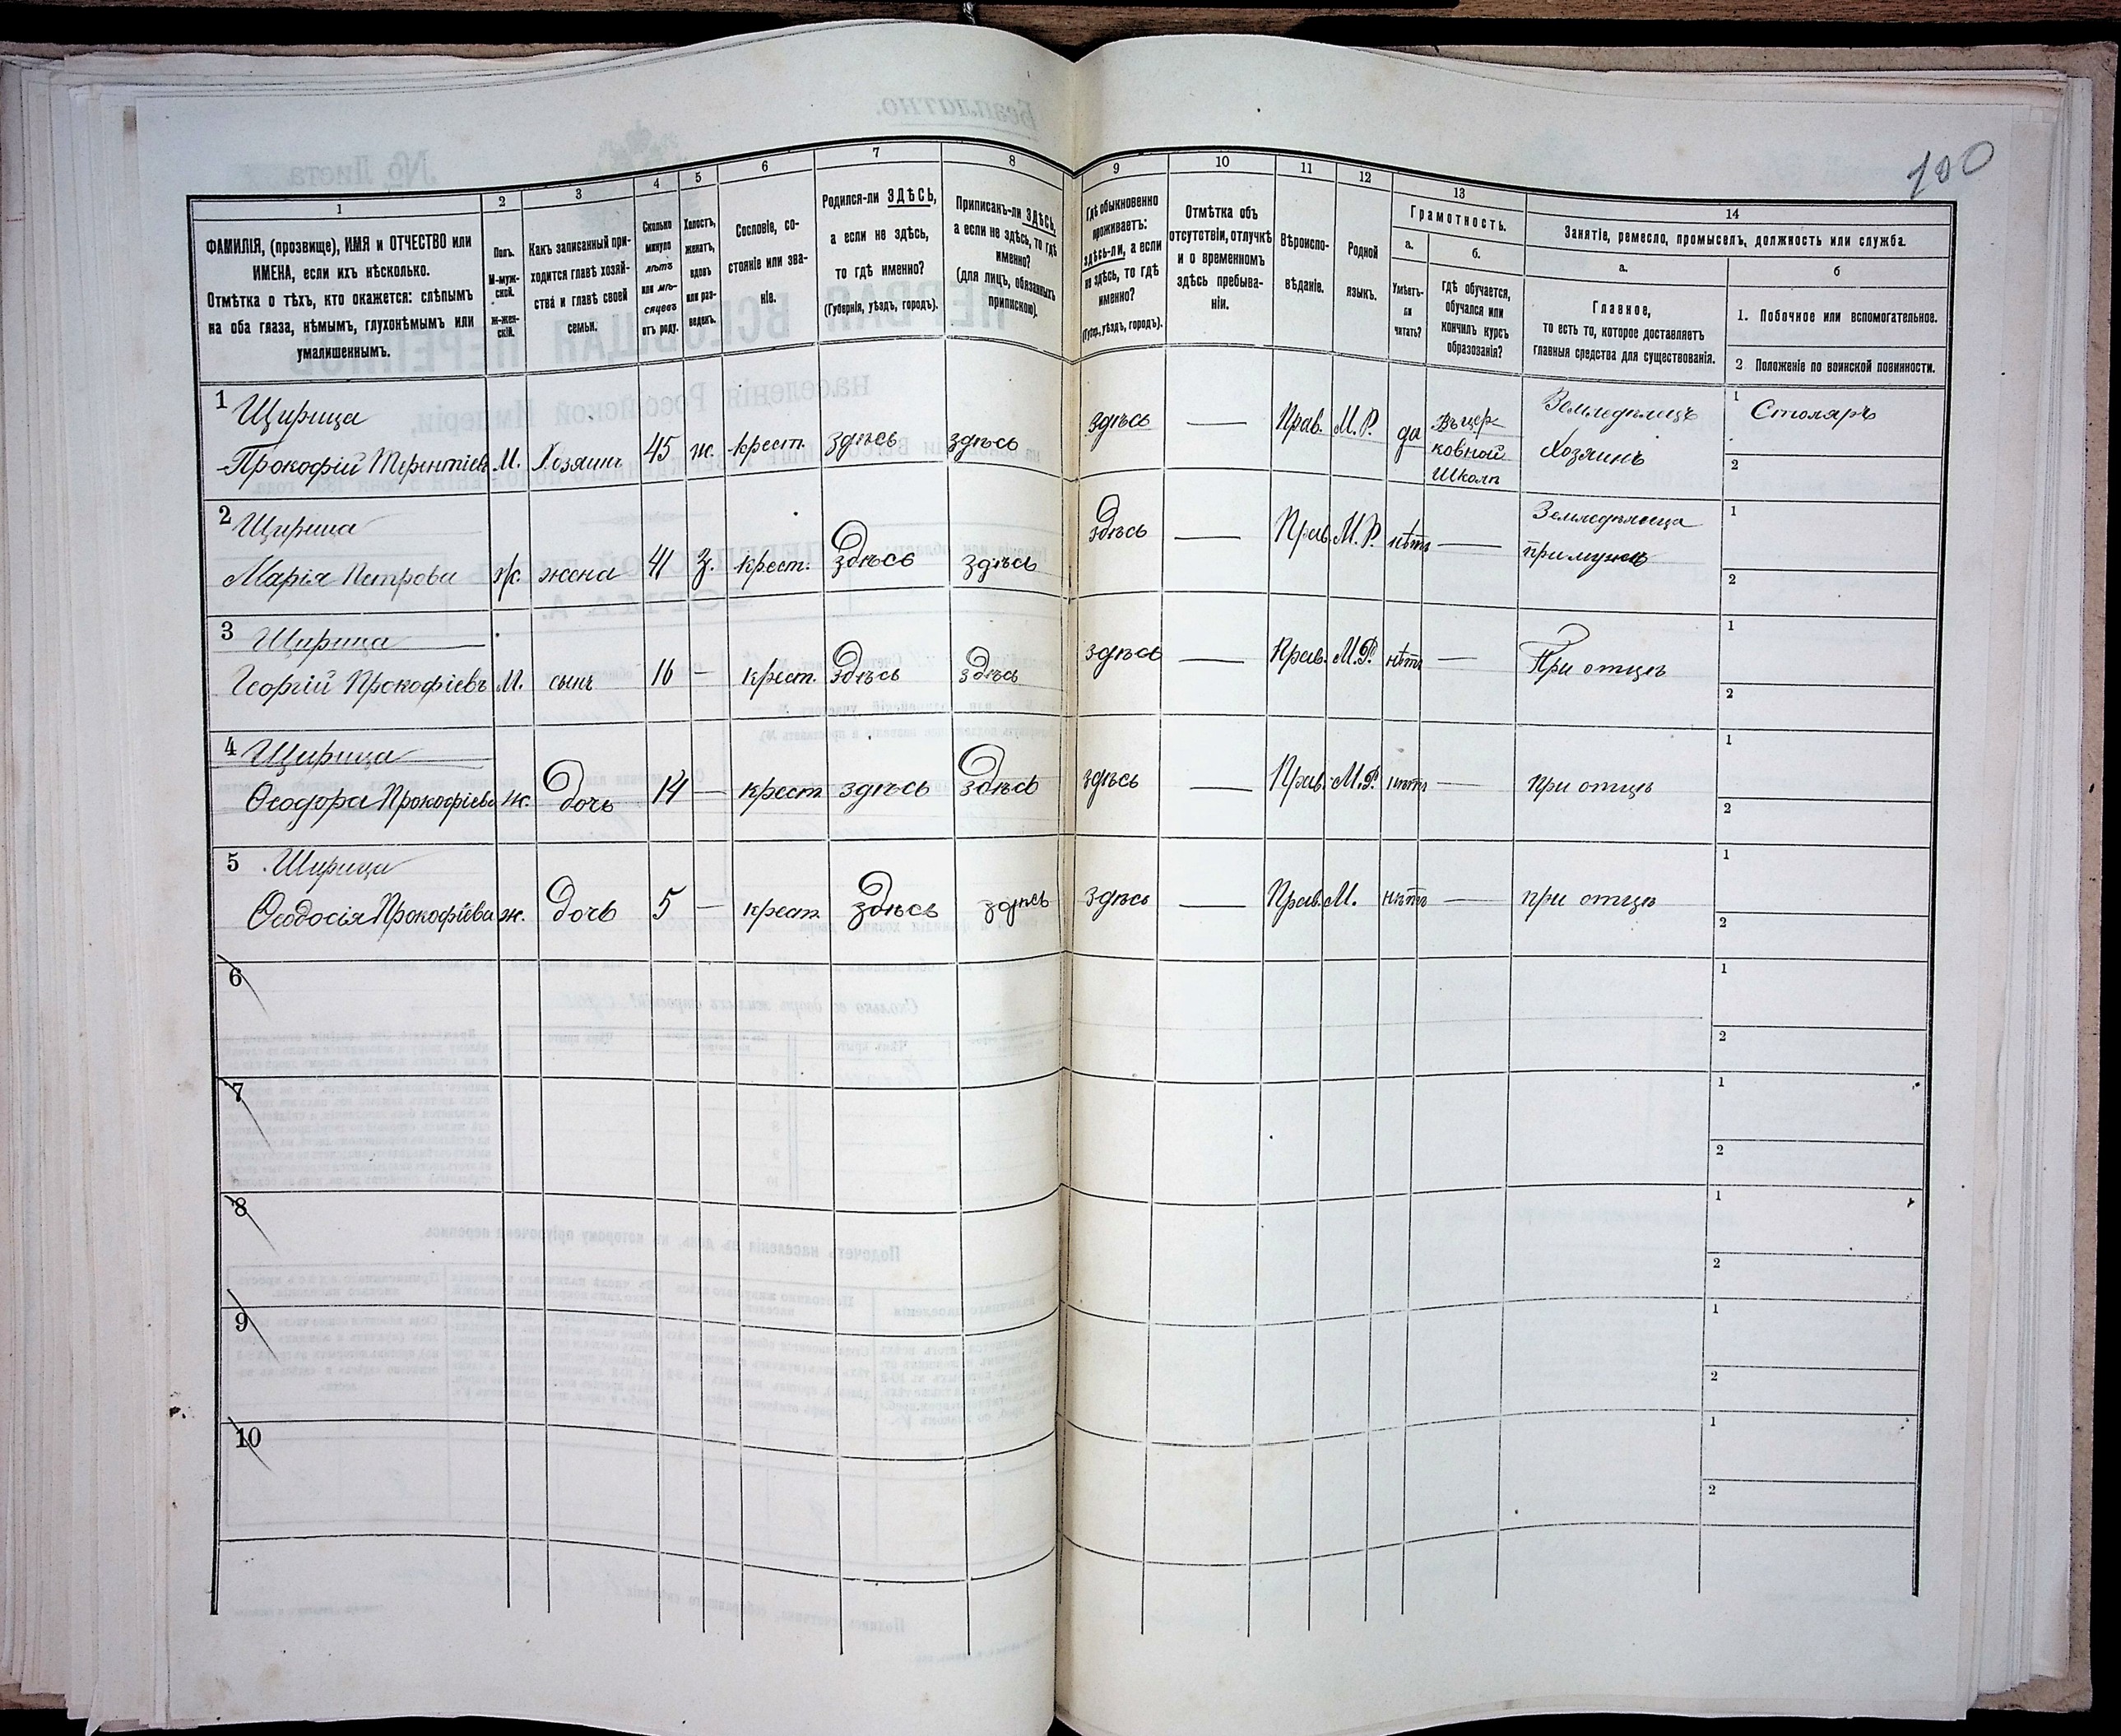 100
1
ФАМИЛІЯ, (прозвище), ИМЯ и ОТЧЕСТВО или
ИМЕНА, если ихъ нѣсколько.
Отмѣтка о тѣхъ, кто окажется: слѣпымъ
на оба глаза, нѣмымъ, глухонѣмымъ или
умалишеннымъ.
2
Полъ.
М-муж-
ской.
Ж-жен-
скій.
3
Какъ записанный при-
ходится главѣ хозяй-
ства и главѣ своей
семьи.
4
Сколько
минуло
лѣтъ
или мѣ-
сяцевъ
отъ роду.
5
Холостъ,
женатъ,
вдовъ
или раз-
веденъ.
6
Сословіе, со-
стояніе или зва-
ніе.
7
Родился-ли ЗДѢСЬ,
а если не здѣсь,
то гдѣ именно?
(Губернія, уѣздъ, городъ).
8
Приписанъ-ли ЗДѢСЬ,
а если не здѣсь, то гдѣ
именно?
(для лицъ, обязанныхъ
припискою).
9
Гдѣ обыкновенно
проживаетъ:
здѣсь-ли, а если
не здѣсь, то гдѣ
именно?
(Губер., уѣздъ, городъ).
10
Отмѣтка объ
отсутствіи, отлучкѣ
и о временномъ
здѣсь пребыва-
ніи.
11
Вѣроиспо-
вѣданіе.
12
Родной
языкъ.
13
Грамотность.
а.
Умѣетъ-
ли
читать?
б.
Гдѣ обучается,
обучался или
кончилъ курсъ
образованія?
14
Занятіе, ремесло, промыселъ, должность или служба.
а.
Главное,
то есть то, которое доставляетъ
главныя средства для существованія.
б
1. Побочное или вспомогательное.
2 Положеніе по воинской повинности.
1 Щирица
Прокофій Терентіев М. Хозяинъ 45 ж. крест здѣсь здѣсь здѣсь — Прав. М.Р. да
Въ цер-
ковной
Школѣ
Земледѣлецъ
Хозяинъ
1 Столяръ
2
2 Щирица
Марія Петрова ж. жена 41 З. крест. здѣсь здѣсь здѣсь — Прав. М.Р. нѣтъ —
Земледѣлица
при мужѣ
1
2
3 Щирица
Георгій Прокофіевъ М. сынъ 16 — крест. здѣсь здѣсь здѣсь — Прав. М.Р. нѣтъ — При отцѣ
1
2
4 Щирица
Ѳеодора Прокофіева ж. дочь 14 — крест здѣсь здѣсь здѣсь — Прав. М.Р. нѣтъ — при отцѣ
1
2
5 Щирица
Ѳеодосія Прокофіева ж. дочь 5 — крест здѣсь здѣсь здѣсь — Прав. М. нѣтъ — при отцѣ
1
2
6
1
2
7
1
2
8
1
2
9
1
2
10
1
2